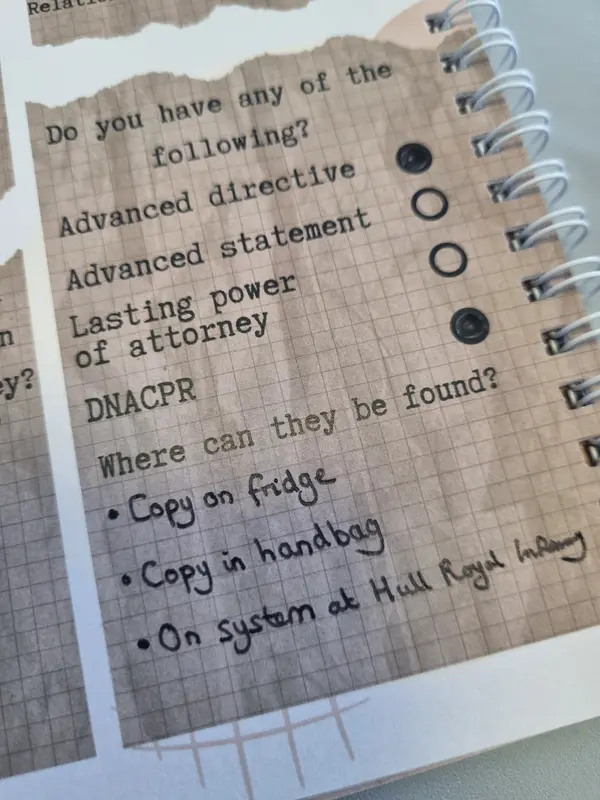 Relati
Do you have any of the
following?
Advanced directive
Advanced statement
Lasting power
of attorney
DNACPR
n
ey?
Where can they be found?
• Copy on fridge
• Copy in handbag
• On system at Hull Royal Infirmary